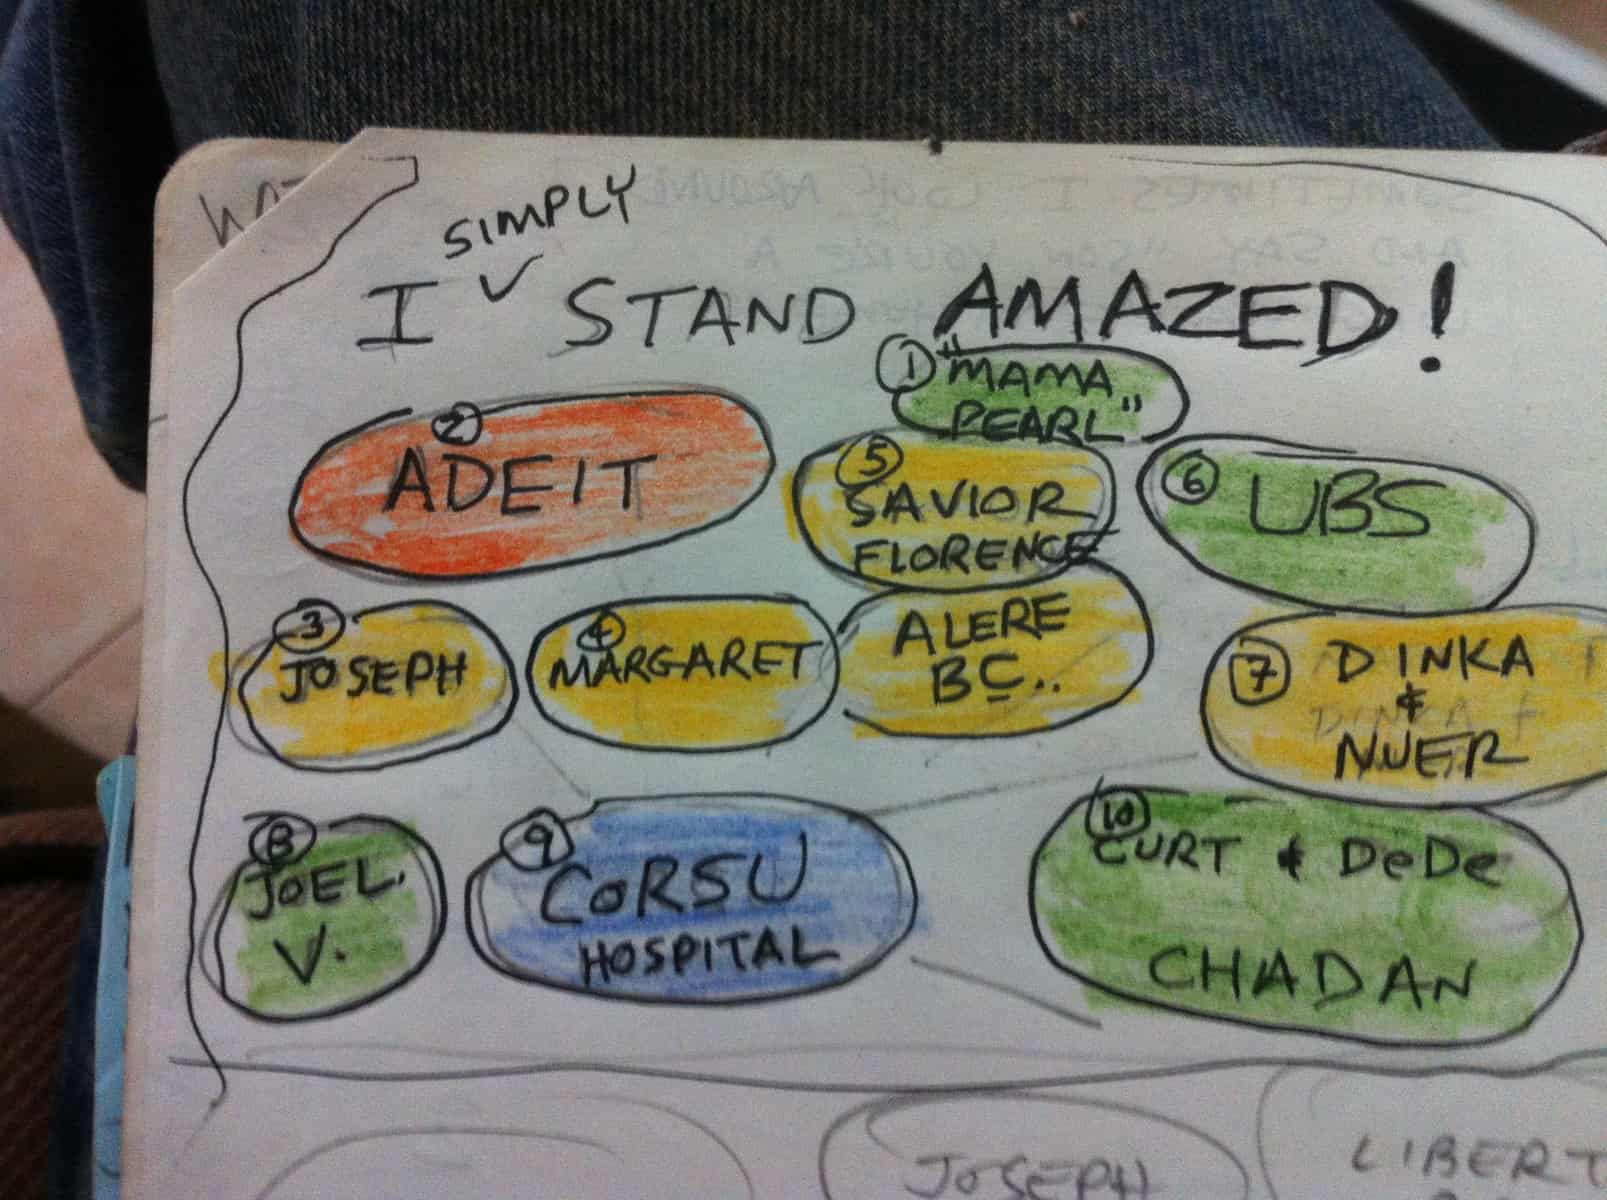 SIMPLY
I ✓ STAND AMAZED!
1 "MAMA
PEARL"
2
ADEIT
5
SAVIOR
FLORENCE
6 UBS
3
JOSEPH
4
MARGARET
ALERE
BC..
7 DINKA
&
NUER
DINKA &
8
JOEL.
V.
9
CORSU
HOSPITAL
10
CURT & DeDe
CHADAN
JOSEPH
LIBERT